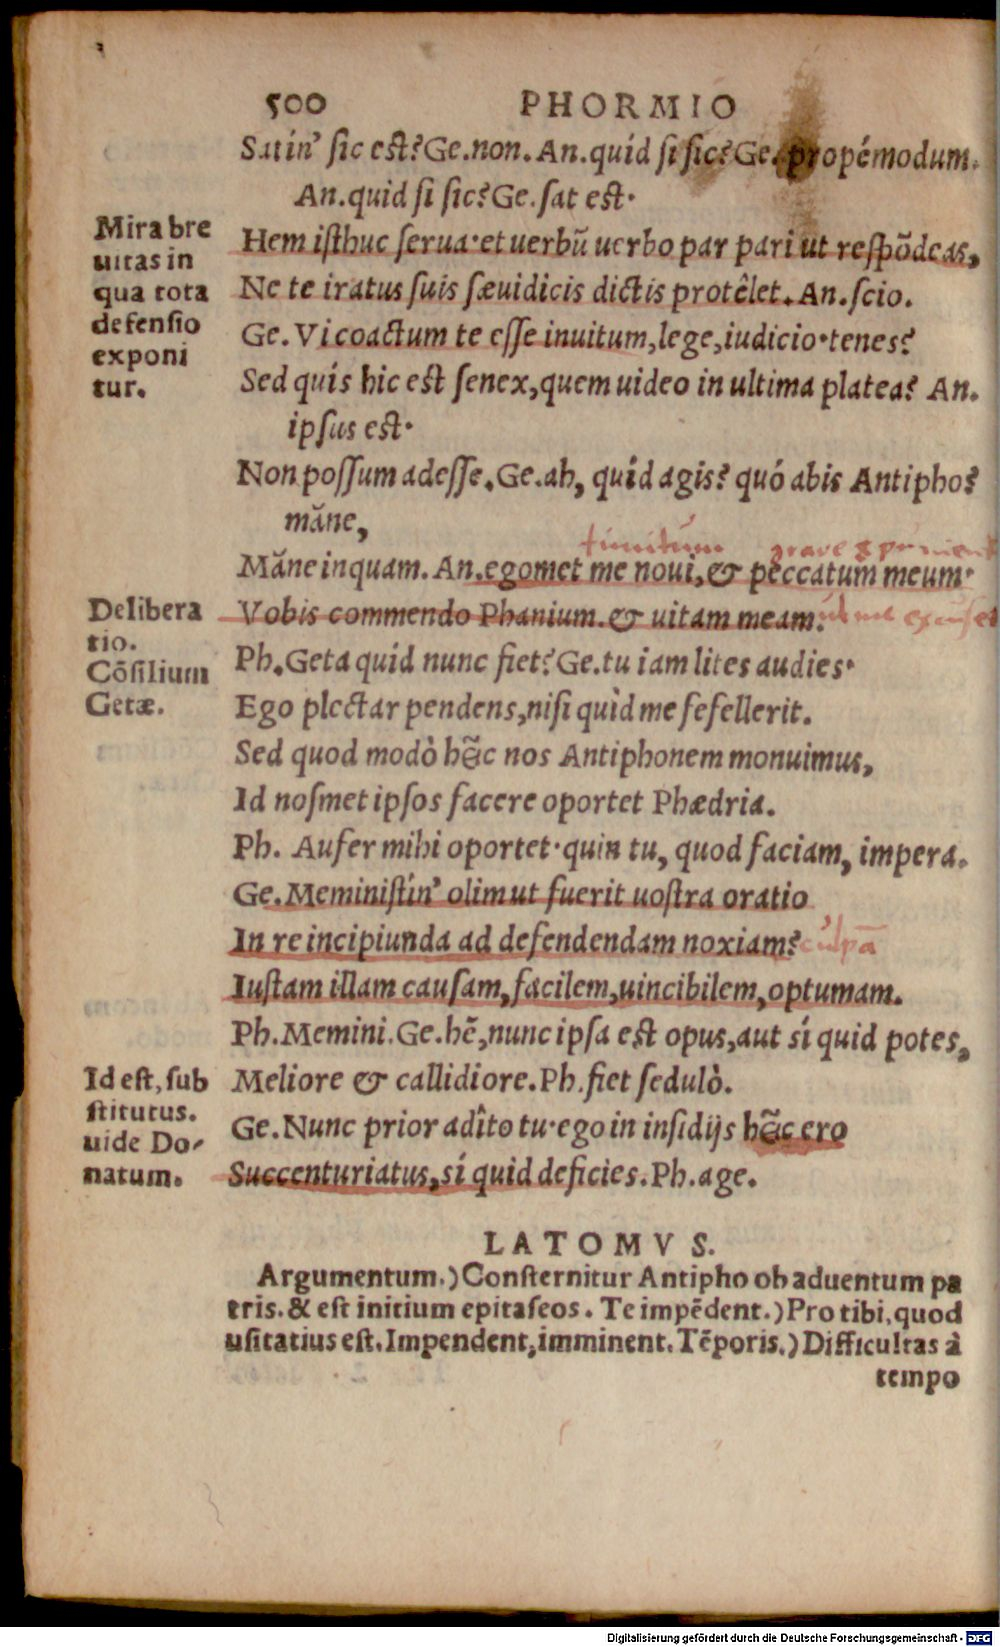 500 PHORMIO
Satin' sic est? Ge. non. An. quid si sic? Ge. propémodum.
An. quid si sic? Ge. sat est.
Mira bre
uitas in
qua tota
defensio
exponi
tur.
Hem isthuc serua. et uerbū uerbo par pari ut respōdeas,
Ne te iratus suis sæuidicis dictis protêlet. An. scio.
Ge. Vi coactum te esse inuitum, lege, iudicio. tenes?
Sed quis hic est senex, quem uideo in ultima platea? An.
ipsus est.
Non possum adesse. Ge. ah, quid agis? quó abis Antipho?
măne,
timitum graue
Măne inquam. An. egomet me noui, & peccatum meum.
Delibera
tio.
Cōsilium
Getæ.
Vobis commendo Phanium. & uitam meam. ut me
Ph. Geta quid nunc fiet? Ge. tu iam lites audies.
Ego plectar pendens, nisi quid me fefellerit.
Sed quod modò hîc nos Antiphonem monuimus,
Id nosmet ipsos facere oportet Phædria.
Ph. Aufer mihi oportet. quin tu, quod faciam, impera.
Ge. Meministin' olim ut fuerit uostra oratio
In re incipiunda ad defendendam noxiam? culpā
Iustam illam causam, facilem, uincibilem, optumam.
Ph. Memini. Ge. hē, nunc ipsa est opus, aut sí quid potes,
Id est, sub
stitutus.
uide Do-
natum.
Meliore & callidiore. Ph. fiet sedulò.
Ge. Nunc prior adîto tu. ego in insidijs hîc ero
Succenturiatus, sí quid deficies. Ph. age.
LATOMVS.
Argumentum.) Consternitur Antipho ob aduentum pa
tris. & est initium epitaseos. Te impēdent.) Pro tibi, quod
usitatius est. Impendent, imminent. Tēporis.) Difficultas à
tempo
Digitalisierung gefördert durch die Deutsche Forschungsgemeinschaft - DFG